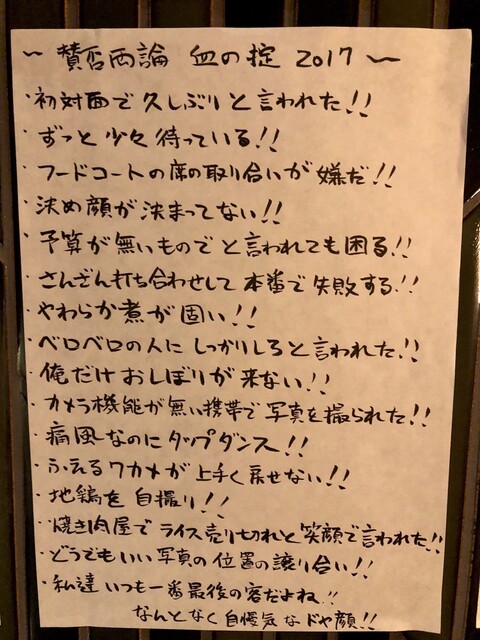 〜 賛否両論 血の掟 2017 〜
・初対面で久しぶりと言われた!!
・ずっと少々待っている!!
・フードコートの席の取り合いが嫌だ!!
・決め顔が決まってない!!
・予算が無いもので と言われても困る!!
・さんざん打ち合わせして本番で失敗する!!
・やわらか煮が固い!!
・ベロベロの人に しっかりしろと言われた!!
・俺だけおしぼりが来ない!!
・カメラ機能が無い携帯で写真を撮られた!!
・痛風なのにタップダンス!!
・ふえるワカメが上手く戻せない!!
・地鶏を自撮り!!
・焼き肉屋でライス売り切れと笑顔で言われた!!
・どうでもいい写真の位置の譲り合い!!
・私達いつも一番最後の客だよね!!
なんとなく自慢気なドヤ顔!!